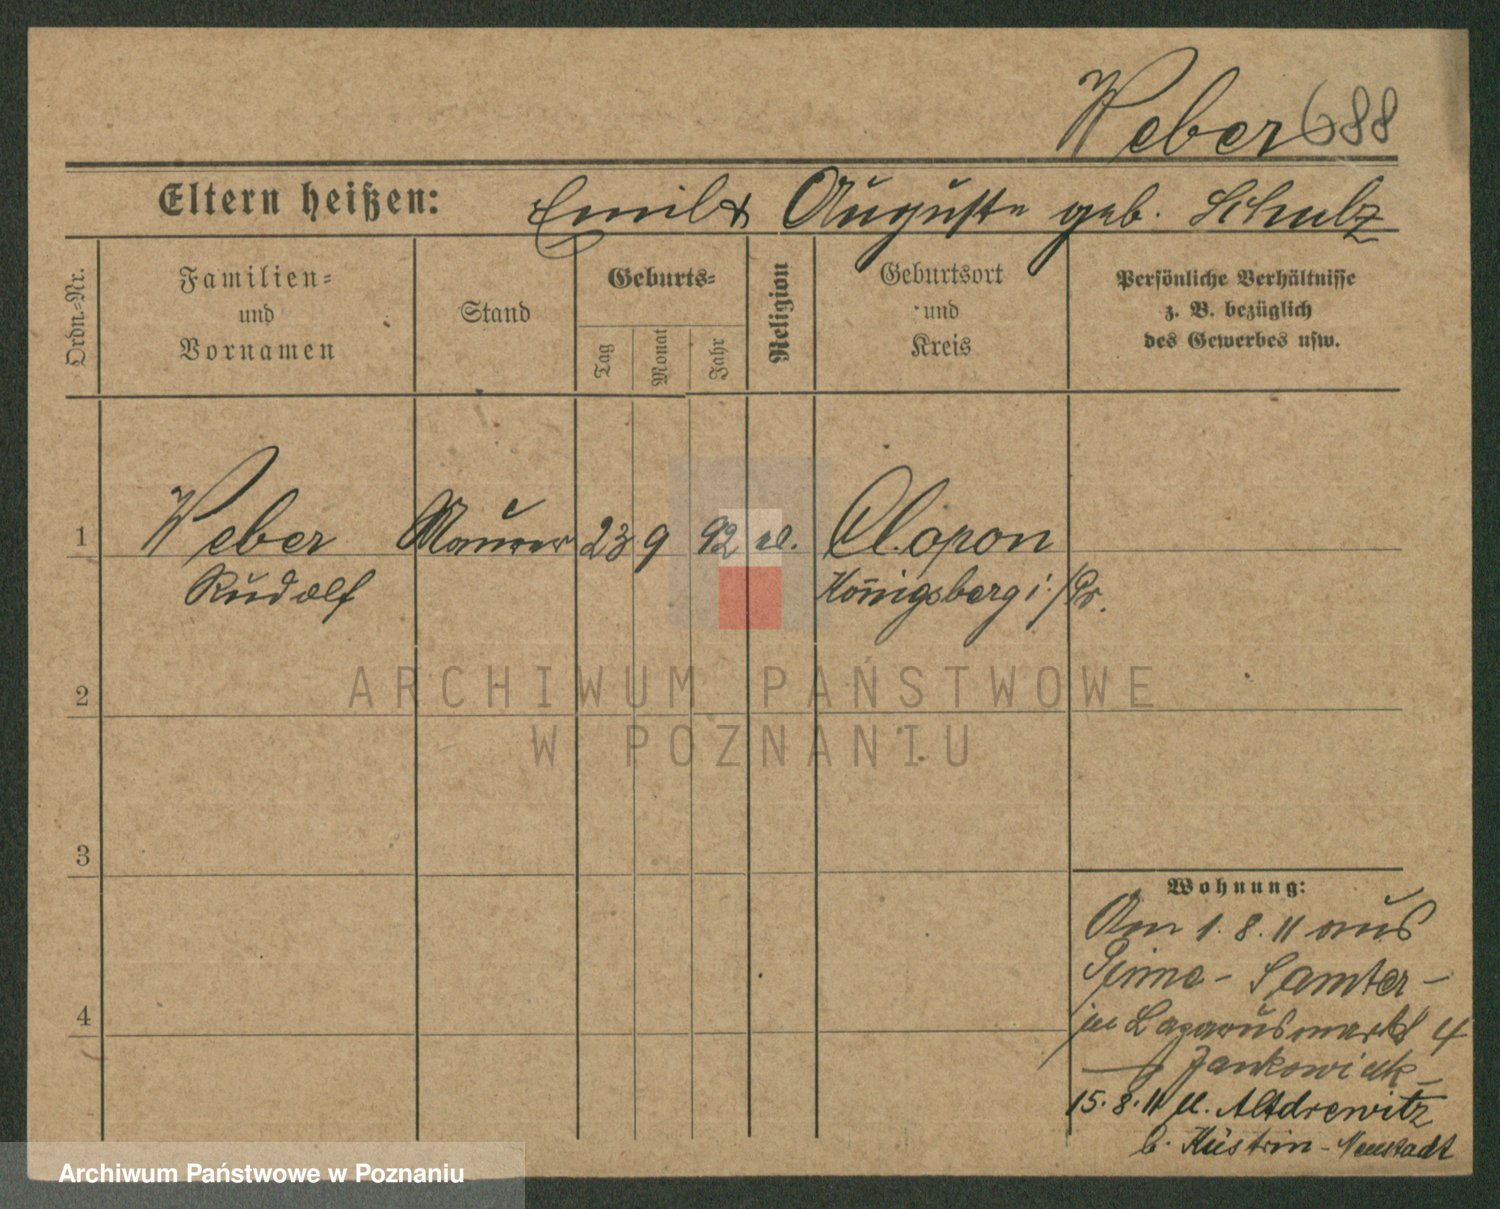 Weber 688
Eltern heißen: Emil & Auguste geb. Schulz
Ordn.-Nr.
Familien-
und
Vornamen
Stand
Geburts-
Tag
Monat
Jahr
Religion
Geburtsort
und
Kreis
Persönliche Verhältnisse
z. B. bezüglich
des Gewerbes usw.
1 Weber Maurer 23 9 92
Rudolf Königsberg i./Pr.
ARCHIWUM PAŃSTWOWE
W POZNANIU
2
3
4
Wohnung:
Am 1. 8. 11 aus
Pinne - Samter -
in Lazarusmarkt 4
Jankowiak
15. 8. 11 Altdrewitz
b. Küstrin-Neustadt
Archiwum Państwowe w Poznaniu